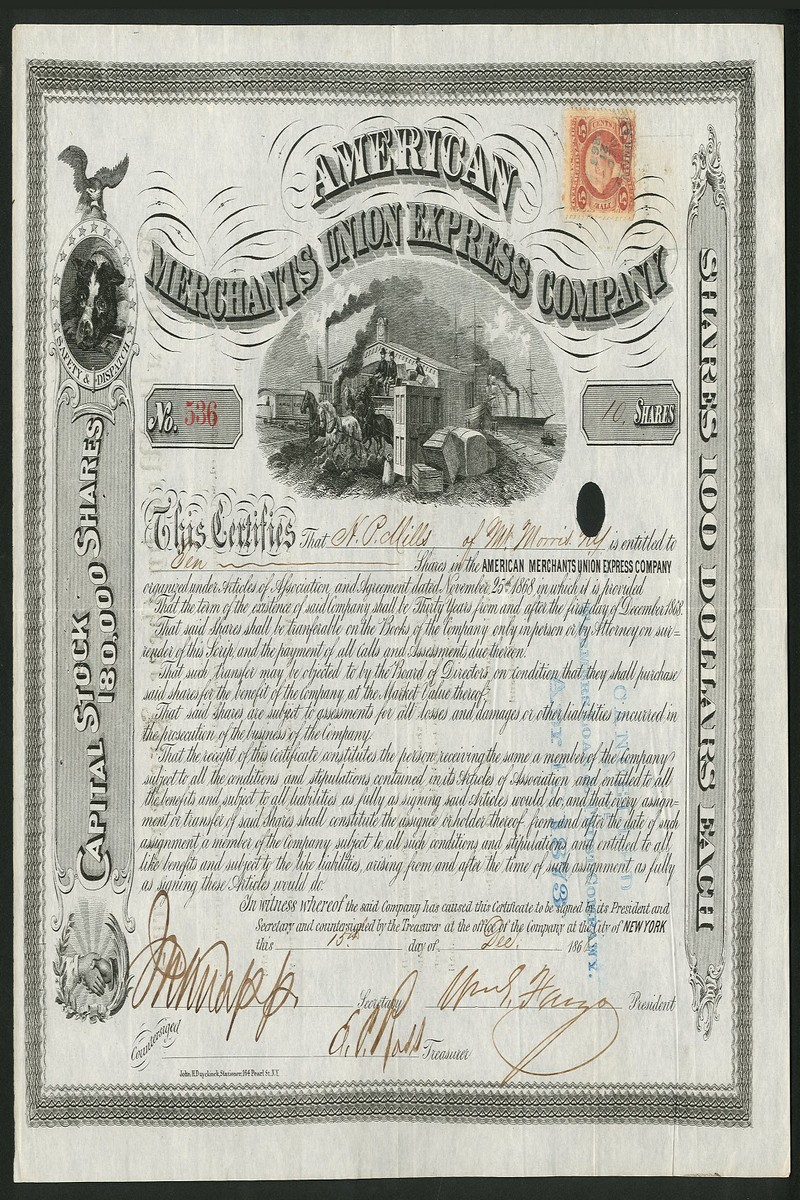 AMERICAN
MERCHANTS UNION EXPRESS COMPANY
SAFETY & DISPATCH
No. 536
10 SHARES
CAPITAL STOCK
180,000 SHARES
SHARES 100 DOLLARS EACH
This Certifies That N. P. Mills of Mt. Morris. N.Y. is entitled to
Ten Shares in the AMERICAN MERCHANTS UNION EXPRESS COMPANY
organized under Articles of Association, and Agreement dated November 25th 1868, in which it is provided
That the term of the existence of said Company shall be Thirty Years from and after the first day of December 1868.
That said Shares shall be tranferable on the Books of the Company only in person or by Attorney on sur=
render of this Scrip, and the payment of all Calls and Assessments due thereon.
That such transfer may be objected to by the Board of Directors on condition that they shall purchase
said shares for the benefit of the Company at the Market Value thereof
That said Shares are subject to assessments for all losses and damages or other liabilities incurred in
the prosecution of the business of the Company.
That the receipt of this certificate constitutes the person receiving the same a member of the Company
subject to all the conditions and stipulations contained in its Articles of Association and entitled to all
the benefits and subject to all liabilities as fully as signing said Articles would do, and that every assign=
ment or transfer of said Shares shall constitute the assignee or holder thereof from and after the date of such
assignment a member of the Company subject to all such conditions and stipulations and entitled to all
like benefits and subject to the like liabilities, arising from and after the time of such assignment as fully
as signing these Articles would do
In witness whereof the said Company has caused this Certificate to be signed by its President and
Secretary and countersigned by the Treasurer at the office of the Company at the City of NEW YORK
this 15th day of Dec. 186
Secretary Wm G. Fargo President
Countersigned
E. C. Ross Treasurer
John R. Duyckinck, Stationer, 164 Pearl St. N.Y.
1873